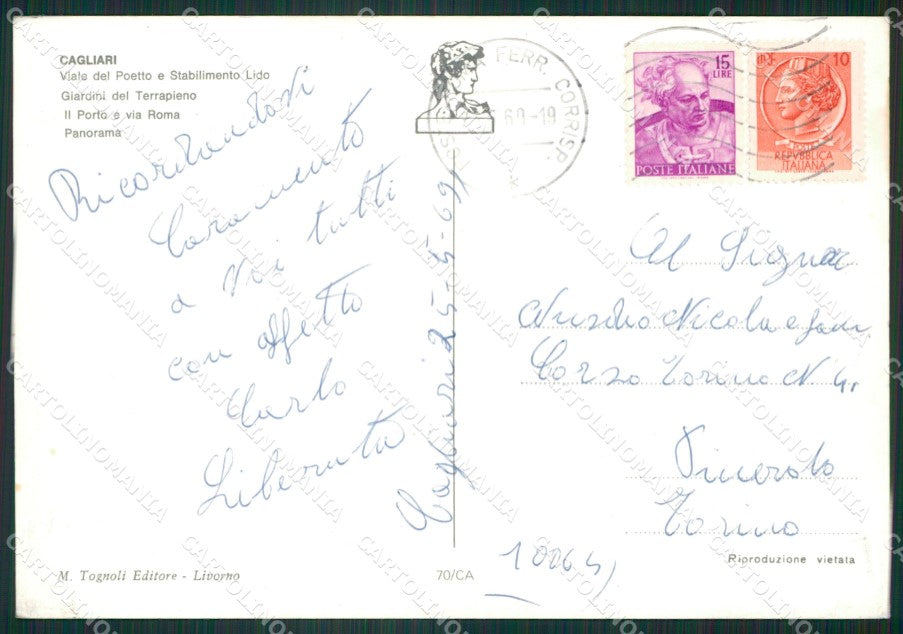 CAGLIARI
Viale del Poetto e Stabilimento Lido
Giardini del Terrapieno
Il Porto e via Roma
Panorama
Ricordandosi
Caramente
a Voi tutti
con affetto
Carlo
Liberata
Cagliari 25-5-69
M. Tognoli Editore - Livorno
70/CA
FERR. CORRISP
69-19
15
LIRE
POSTE ITALIANE
10
POSTE
REPVBBLICA
ITALIANA
Al Signor
Nicola e fam
Corso Torino N 4.
Pinerolo
Torino
10064
Riproduzione vietata
CARTOLINOMANIA